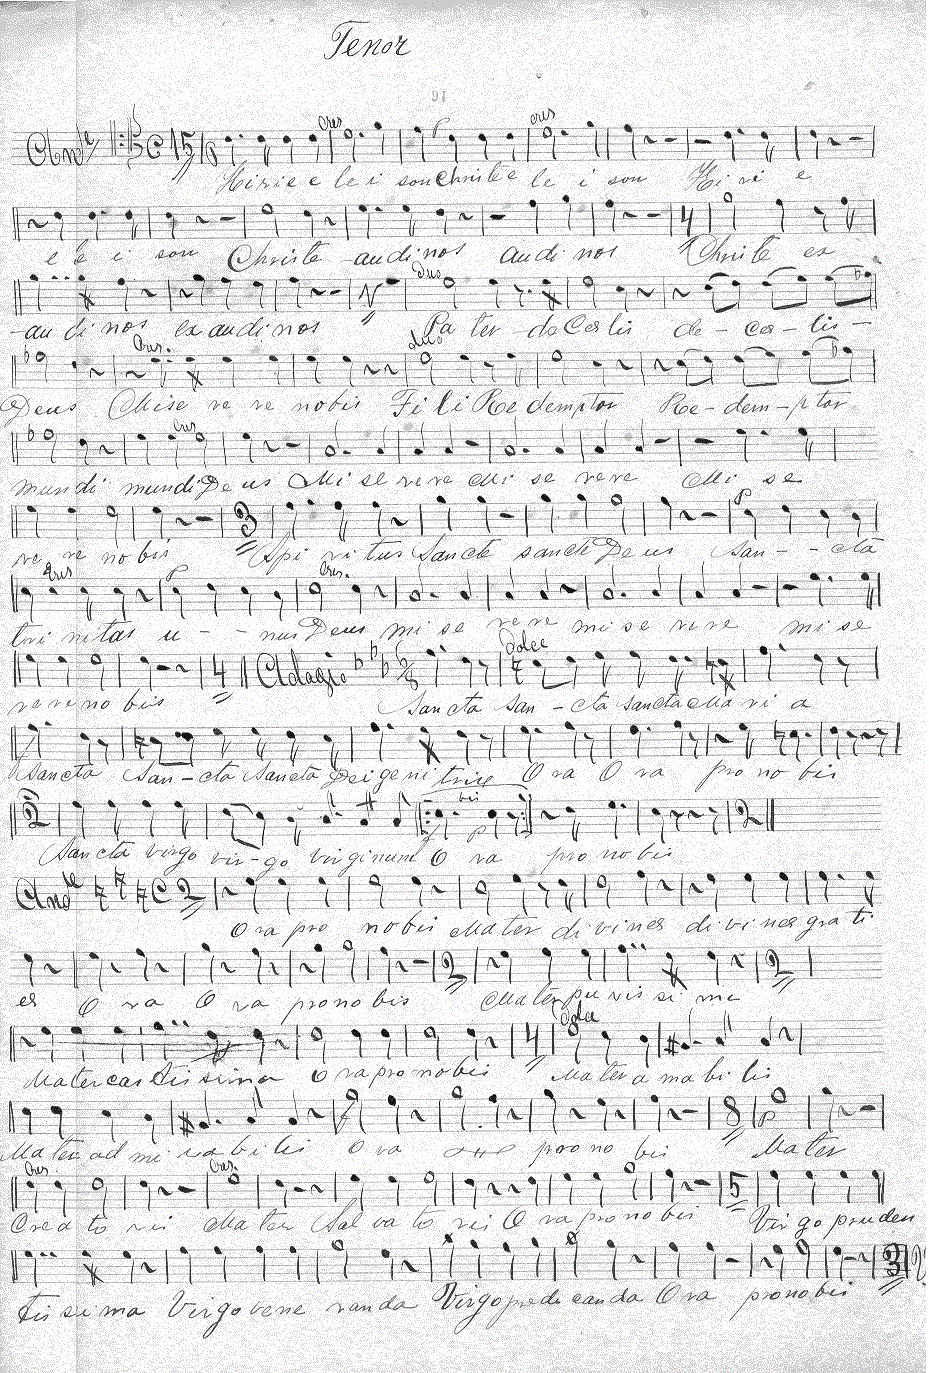 Tenor
16
Andte 15 P cres P cres
Kirie e le i son Christe e le i son Ki ri e
4
e le i son Christe audi nos audi nos Christe ex
duo
-au di nos ex audi nos Pa ter de Coe lis de - coe - lis -
Cres. duo
Deus Mise re re nobis Fi li Redemptor Re - dem - ptor
cres
mundi mundi Deus Mi se rere Mi se rere Mi se
3 P
re re no bis Spi ri tus Sancte sancte Deus San - - cta
cres P cres.
tri nitas u - - nus Deus mi se re re mi se re re mi se
4 Adagio 6/8 dolce
re re no bis Sancta san - cta sancta Ma ri a
Sancta San - cta Sancta Dei geni trix O ra O ra pro no bis
2 bis P 2
Sancta virgo vir - go virginum O ra pro no bis
Andte C 2
O ra pro nobis Mater di vi nes di vi nes gra ti
2 2
es O ra O ra pro no bis Mater pu ris si ma
4 dolce
Mater cas tis sima O ra pro no bis Mater a ma bi lis
8 P
Mater ad mi ra bi lis O ra pro no bis Mater
Cres Cres. 5
Crea to ris Mater Sal va to ris O ra pro no bis Virgo pruden
3
tis si ma Virgo vene randa Virgo predi canda O ra pro no bis